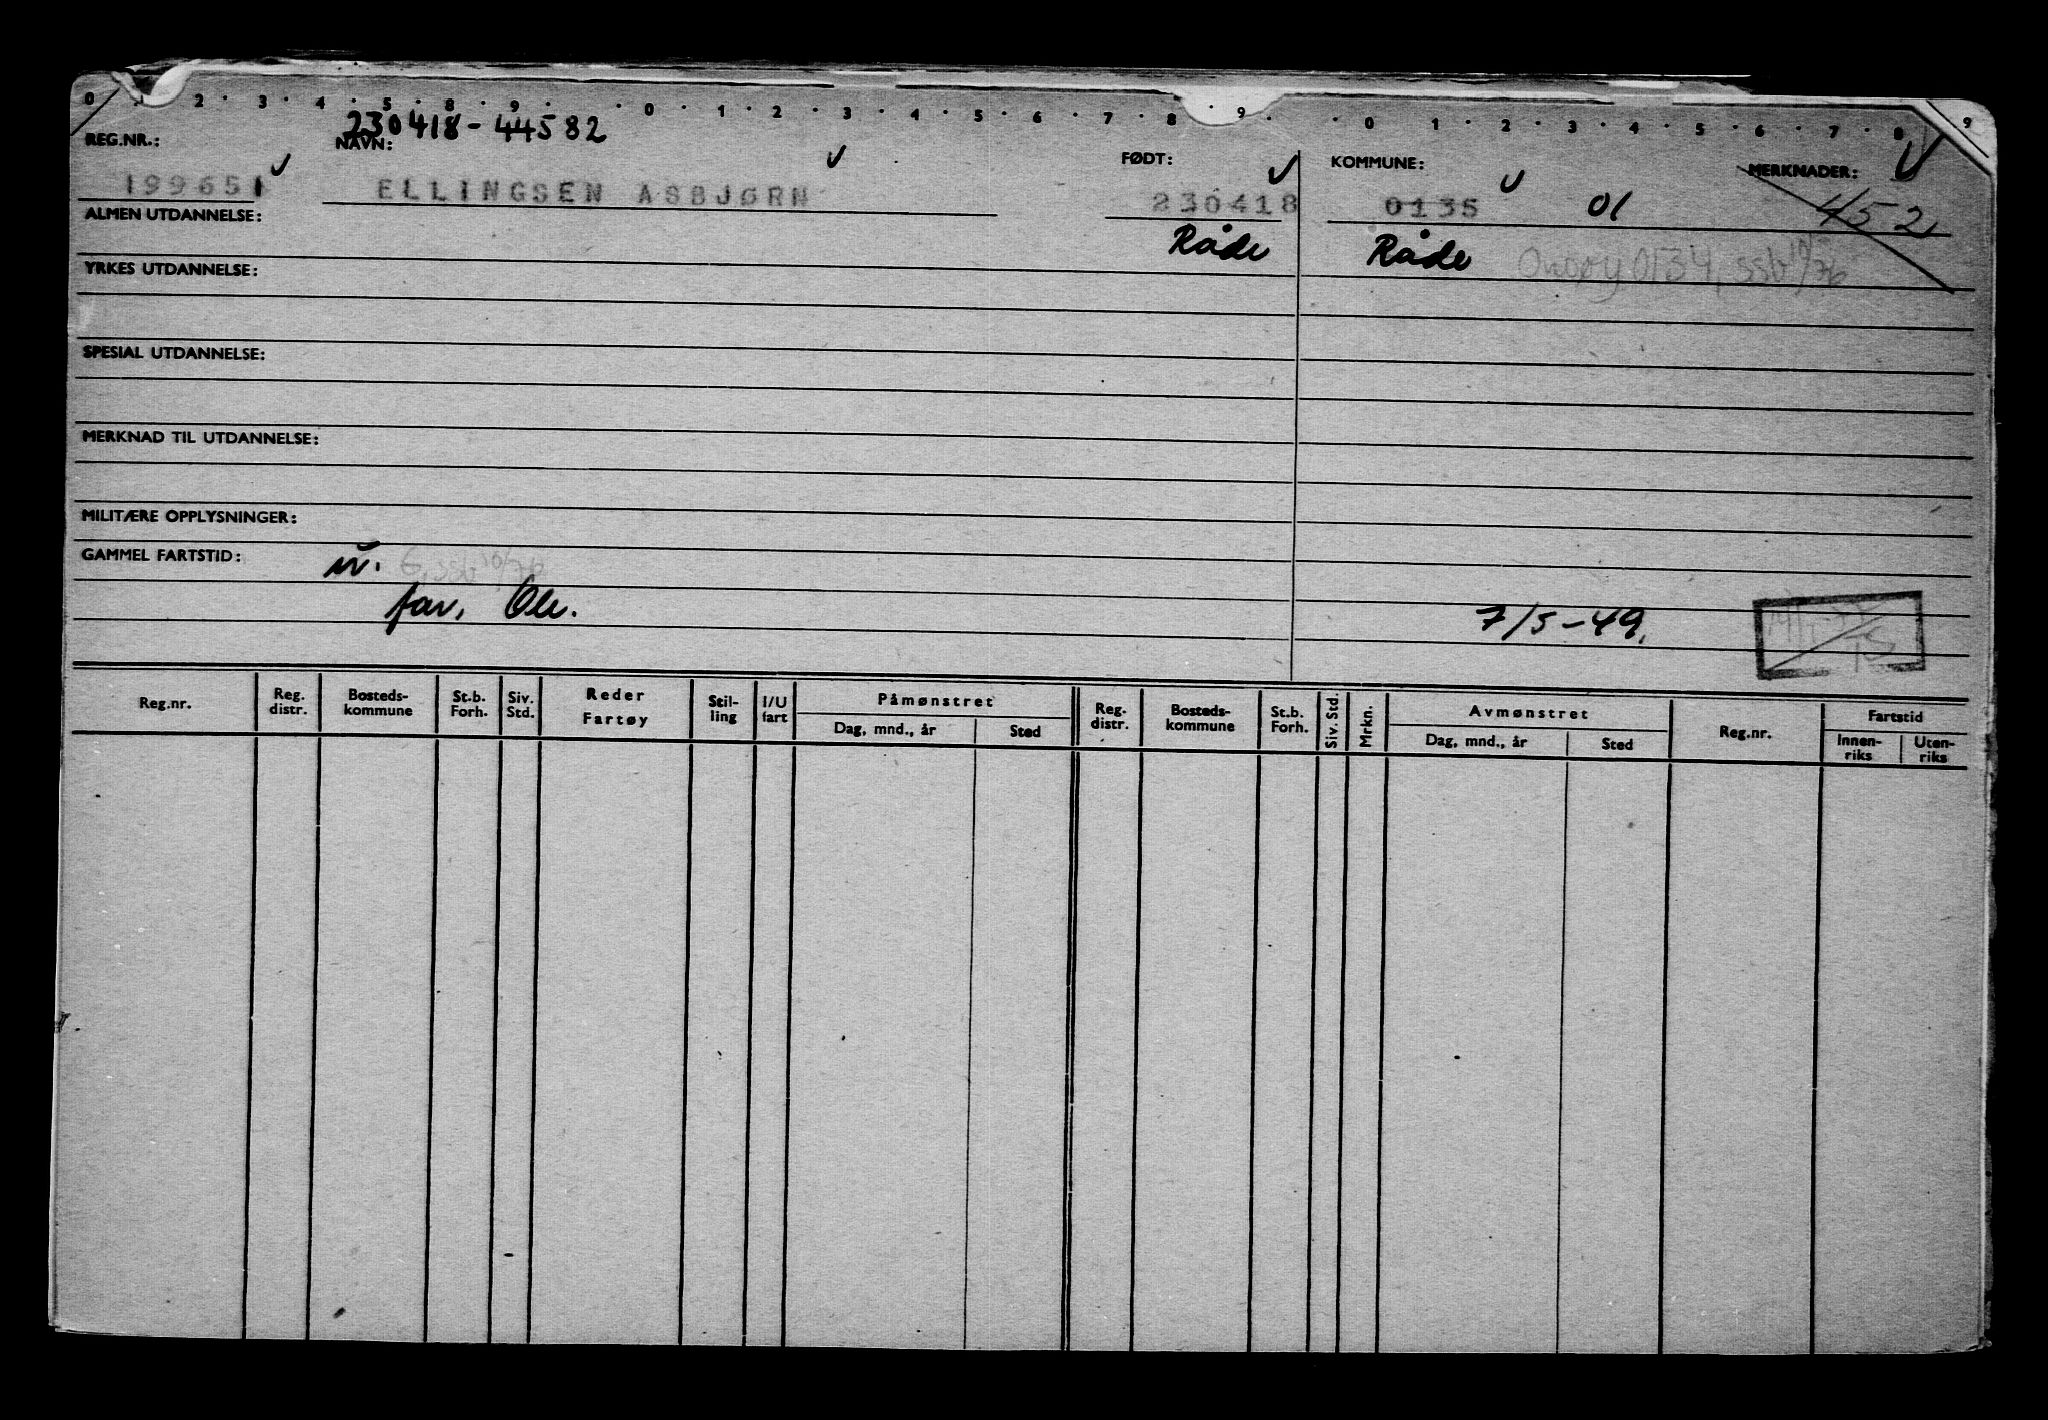 0 2 3 4 5 8 9 0 1 2 3 4 5 6 7 8 9 0 1 2 3 4 5 6 7 8 9
230418-44582
REG.NR.: NAVN: FØDT: KOMMUNE: MERKNADER:
199651 ELLINGSEN ASBJØRN 230418 0135 01 452
ALMEN UTDANNELSE: Råde Råde Onsøy 0134, ssb 10/76
YRKES UTDANNELSE:
SPESIAL UTDANNELSE:
MERKNAD TIL UTDANNELSE:
MILITÆRE OPPLYSNINGER:
GAMMEL FARTSTID: G, ssb 10/76
far, Ole. 7/5-49.
Reg.nr. Reg. distr. Bosteds-kommune St.b. Forh. Siv. Std. Reder Fartøy Stil-ling I/U fart Påmønstret Reg. distr. Bosteds-kommune St.b. Forh. Siv. Std. Mrkn. Avmønstret Reg.nr. Fartstid
Dag, mnd., år Sted Dag, mnd., år Sted Innen-riks Uten-riks